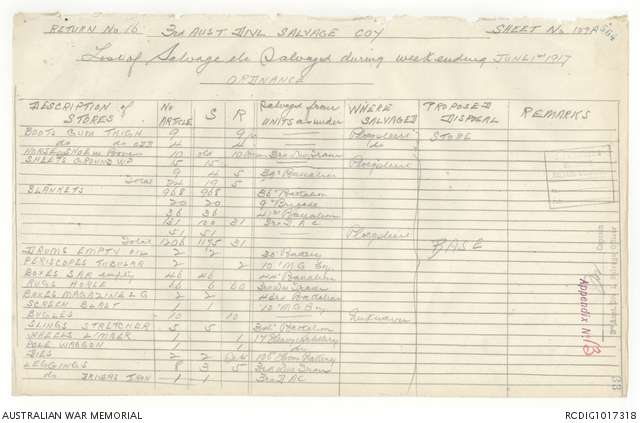 RETURN No 16 3RD AUST DIVL SALVAGE COY SHEET No
List of Salvage etc Salvaged during week ending JUNE 1st 1917
ORDNANCE
DESCRIPTION of STORES No ARTICLE S R Salvaged from UNITS as under WHERE SALVAGED PROPOSED DISPOSAL REMARKS
BOOTS GUM THIGH 9 9 Ploegsteert STORE
do do ODD 4 4 do
HORSE SHOE 10 10 3rd Div Train
SHEETS GROUND W.P. 15 15 Ploegsteert
9 4 5 39th Battalion
Total 24 19 5
BLANKETS 968 968 36th Battalion
20 20 9th Brigade
36 36 41st Battalion
131 100 31 3rd D.A.C
51 51 Ploegsteert
Total 1206 1175 31 BASE
DRUMS EMPTY OIL 2 2 Battery
PERISCOPES TUBULAR 2 2 10th M.G. Coy.
BOXES SAA empty 46 46 44th Battalion
RUGS HORSE 66 6 60 3rd Div Train
BOXES MAGAZINE L G 2 2 Battalion
SCREEN BLAST 1 1 10th M.G. Coy
BUGLES 10 10 Unknown
SLINGS STRETCHER 5 5 Battalion
WHEELS LIMBER 1 1 17th Heavy Battery
POLE WAGGON 1 1 do
2 2 Battery
LEGGINGS 8 3 5 3rd Div Train
do DRIVERS IRON 1 1 3rd D.A.C
Appendix No 13
33
AUSTRALIAN WAR MEMORIAL RCDIG1017318